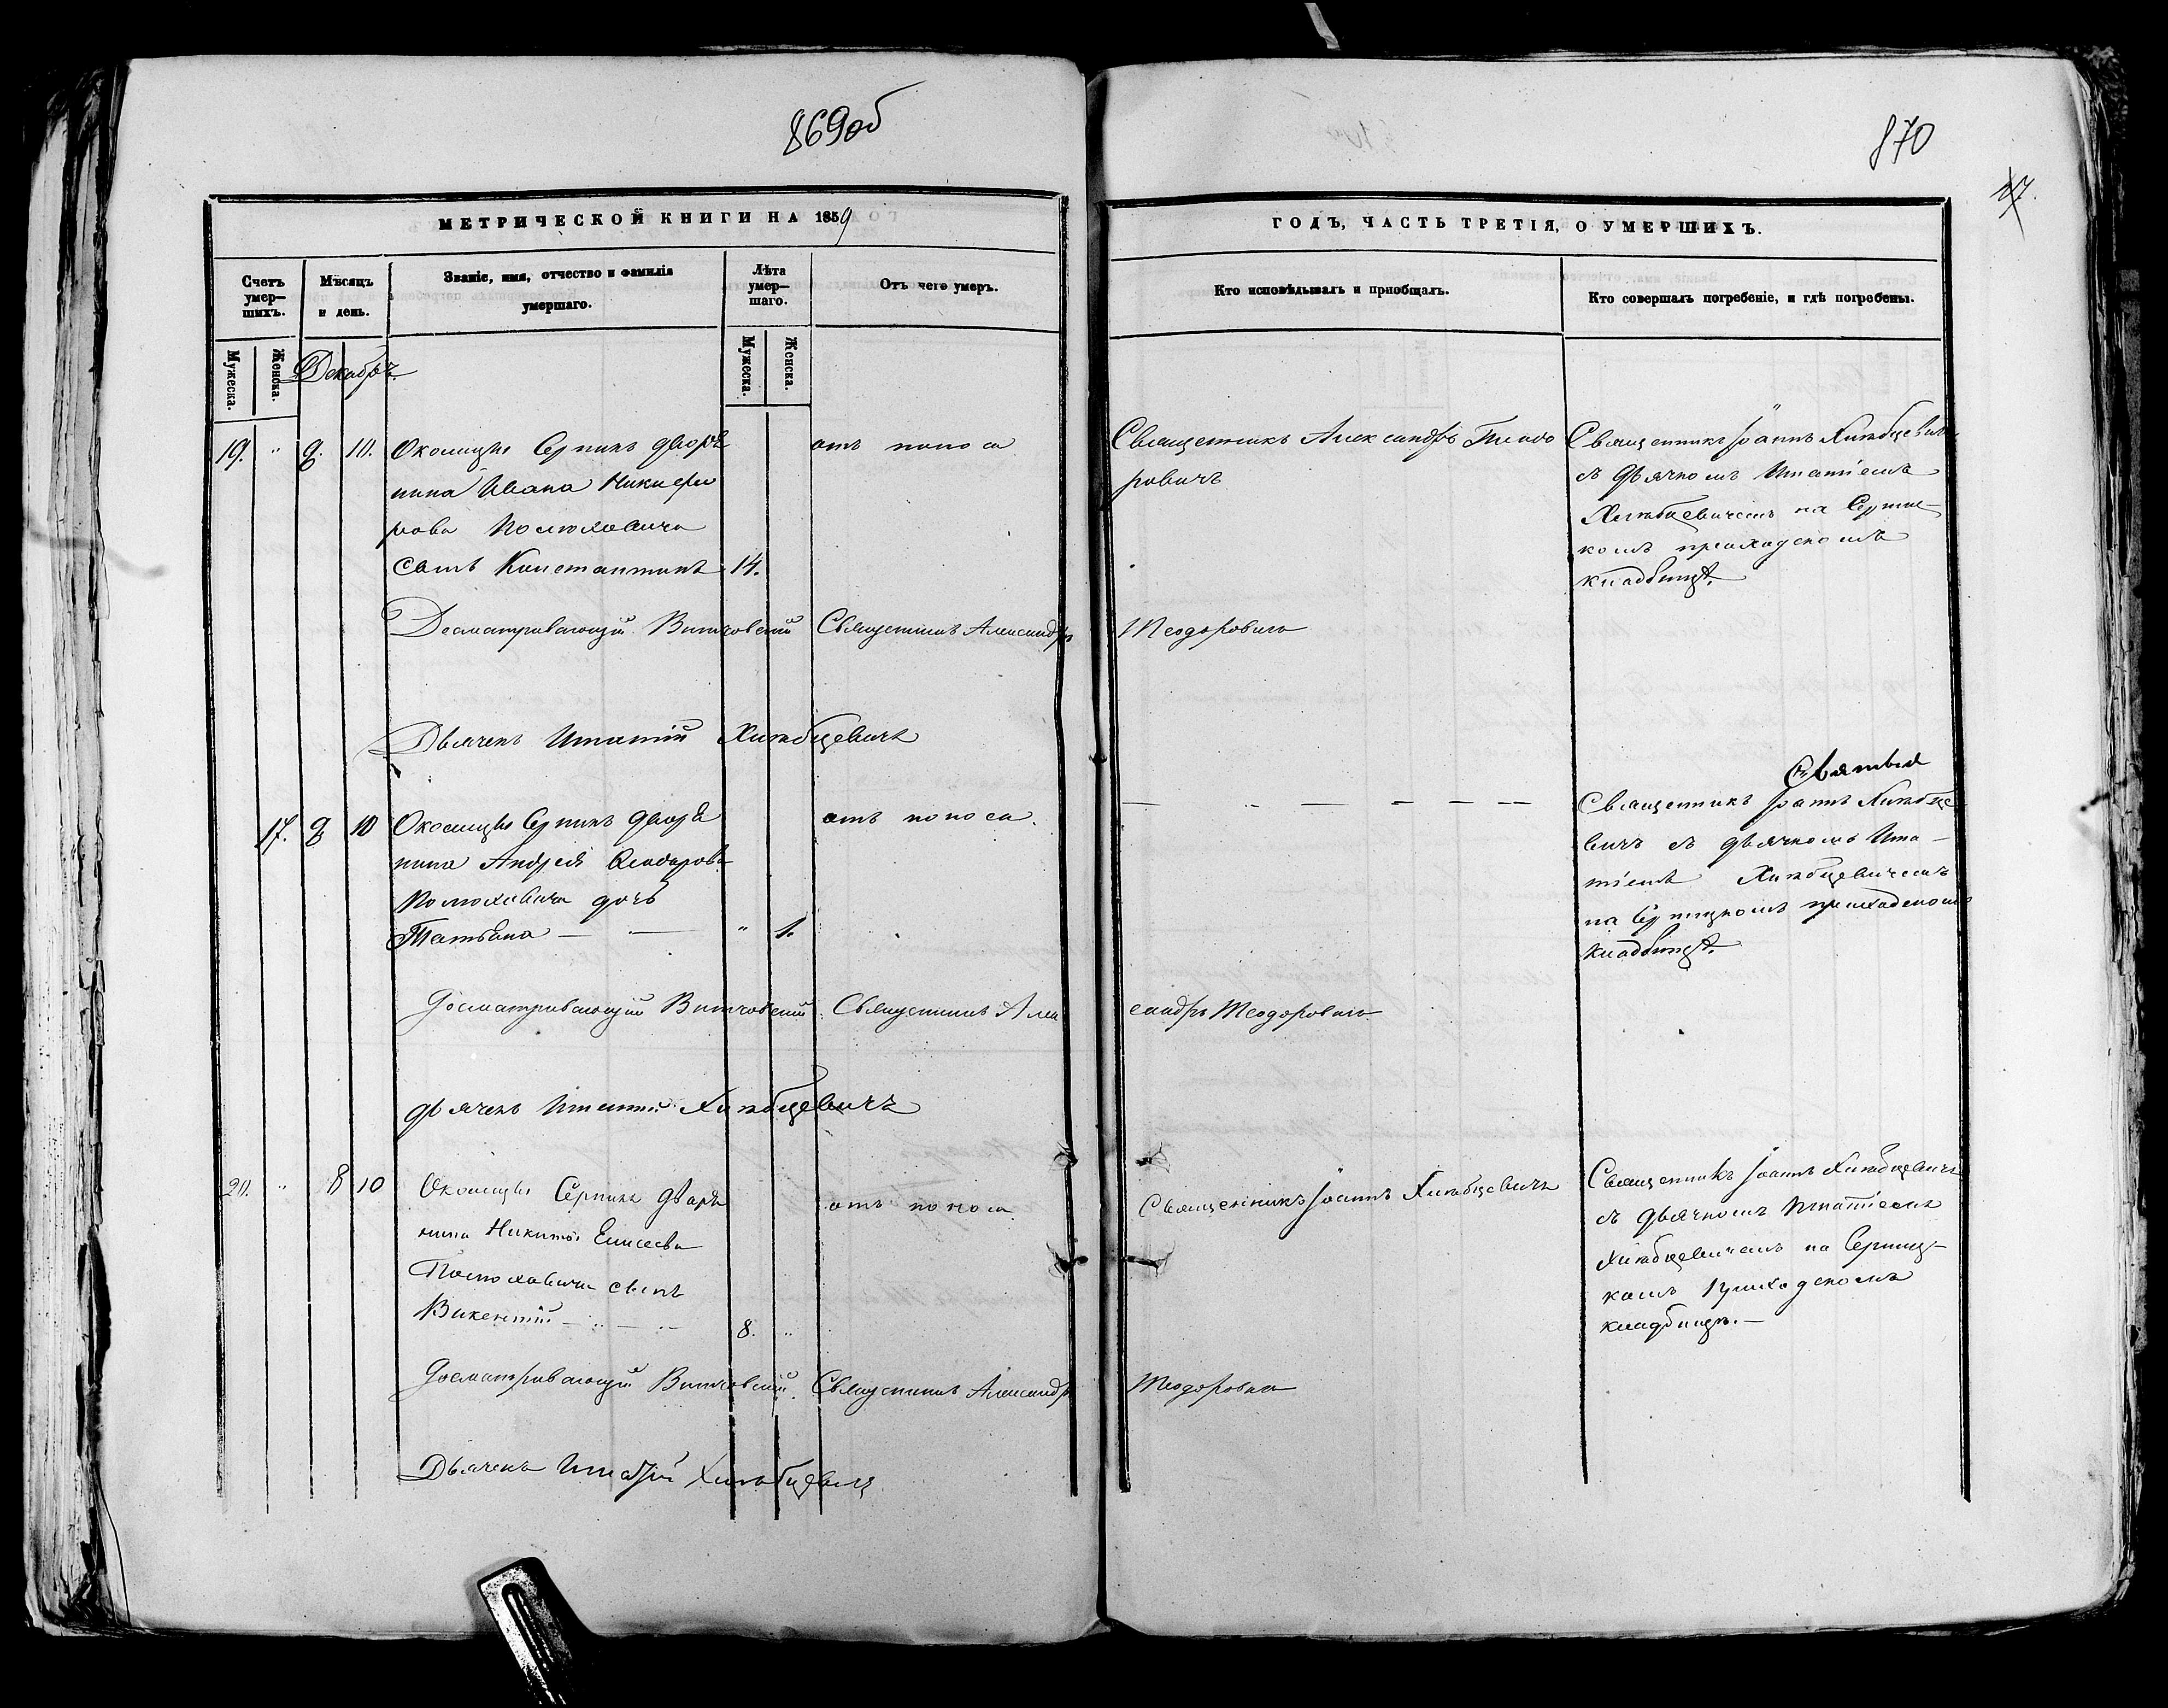 869об
870
17.
МЕТРИЧЕСКОЙ КНИГИ НА 1859
ГОДЪ, ЧАСТЬ ТРЕТІЯ, О УМЕРШИХЪ.
Счетъ умер—шихъ.
Мѣсяцъ и день.
Званіе, имя, отчество и фамилія умершаго.
Лѣта умер—шаго.
Отъ чего умеръ.
Кто исповѣдывалъ и пріобщалъ.
Кто совершалъ погребеніе, и гдѣ погребены.
Мужеска.
Женска.
Мужеска.
Женска.
Декабрь.
19. " 9. 10.
Околицы Серникъ дворя
нина Ивана Никифо
рова Полюховича
сынъ Константинъ 14.
отъ поноса
Священникъ Александръ Теодо
ровичъ
Священникъ Іоаннъ Хитбцевичъ
съ дьячкомъ Игнатіемъ
Хитбцевичемъ на Серниц-
комъ приходскомъ
кладбищѣ.
Досматривающій Витчовскій Священникъ Александръ Теодоровичъ
Дьячекъ Игнатій Хитбцевичъ
17. 9 10
Околицы Серникъ дворя
нина Андрея
Полюховича дочь
Татьяна — " — " 1.
отъ поноса.
Святыя
Священникъ Іоаннъ Хитбце
вичъ съ дьячкомъ Игна—
тіемъ Хитбцевичемъ
на Серницкомъ приходскомъ
кладбищѣ.
Досматривающій Витчовскій Священникъ Алек
сандръ Теодоровичъ
дьячекъ Игнатій Хитбцевичъ
20. " 8 10
Околицы Серникъ дворя
нина Никиты Елисеева
Полюховича сынъ
Викентій — " — " 8. "
отъ поноса
Священникъ Іоаннъ Хитбцевичъ
Священникъ Іоаннъ Хитбцевичъ
съ дьячкомъ Игнатіемъ
Хитбцевичемъ на Серниц-
комъ приходскомъ
кладбищѣ.—
Досматривающій Витчовскій. Священникъ Александръ Теодоровичъ
Дьячекъ Игнатій Хитбцевичъ